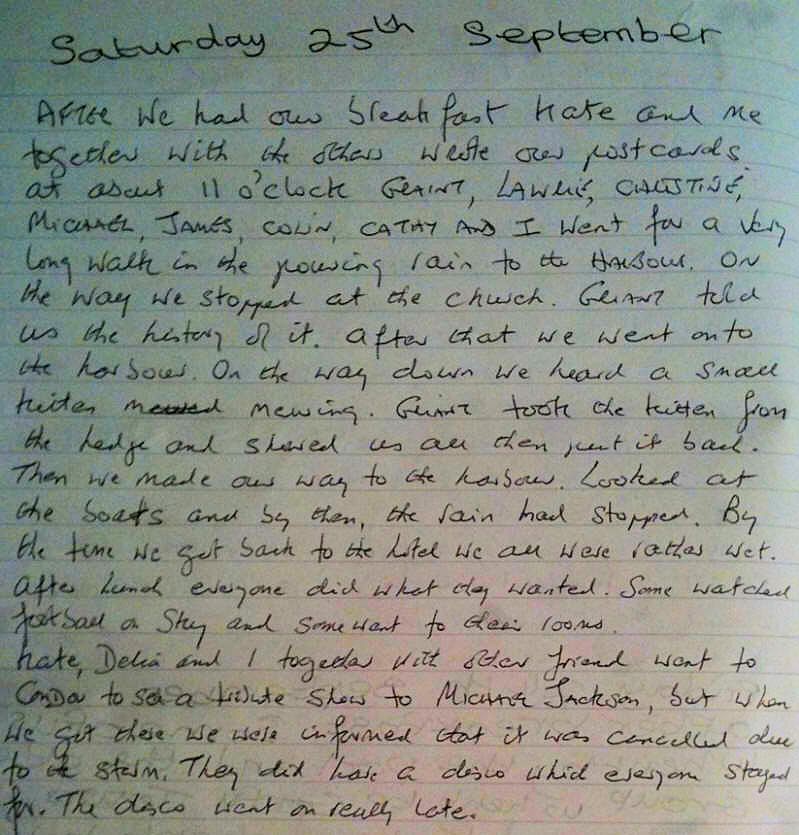 Saturday 25th September
AFTER We had our breakfast Kate and Me
together with the others wrote our postcards.
at about 11 o'clock GRANT, LAWRIE, CHRISTINE,
MICHAEL, JAMES, COLIN, CATHY AND I Went for a Very
Long Walk in the pouring rain to the HARBOUR. ON
the way we stopped at the church. GRANT told
us the history of it. After that we went onto
the harbour. On the way down we heard a small
kitten mewed mewing. GRANT took the kitten from
the hedge and showed us all then put it back.
Then we made our way to the harbour. Looked at
the boats and by then, the rain had stopped. By
the time we got back to the hotel we all were rather wet.
After Lunch everyone did what they wanted. Some watched
football on Sky and some want to their rooms.
Kate, Delia and I together with other friend went to
to see a tribute show to MICHAEL JACKSON, but when
We got there we were informed that it was cancelled due
to the storm. They did have a disco which everyone stayed
for. The disco went on really late.